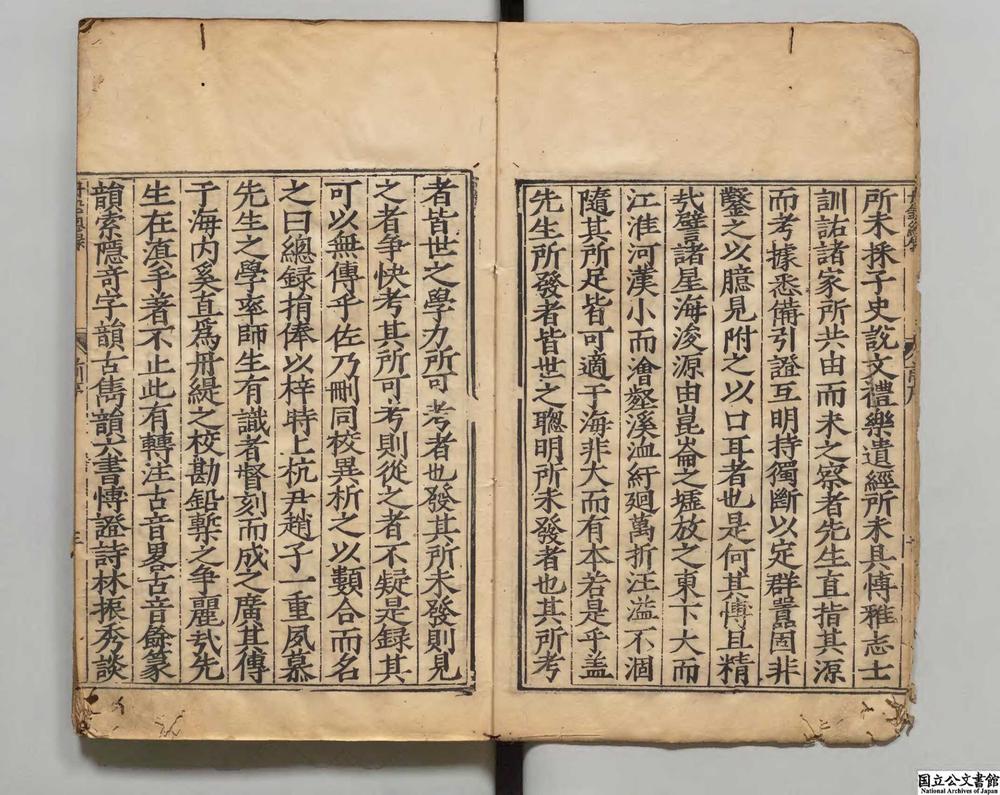 所未採子史說文禮樂遺經所未具博雅志士
訓詁諸家所共由而未之察者先生直指其源
而考據悉備引證互明持獨斷以定群囂固非
鑿之以臆見附之以口耳者也是何其博且精
㢤譬諸星海浚源由崑崙之墟放之東下大而
江淮河漢小而澮壑溪洫紆廻萬折汪溢不涸
隨其所足皆可適于海非大而有本若是乎盖
先生所發者皆世之聰明所未發者也其所考
者皆世之學力所可考者也發其所未發則見
之者爭快考其所可考則從之者不疑是録其
可以無傳乎佐乃刪同校異析之以類合而名
之曰總録捐俸以梓時上杭尹趙子一重夙慕
先生之學率師生有識者督刻而成之廣其傳
于海内奚直為丹緹之校勘鉛槧之争麗㢤先
生在滇手著不止此有轉注古音畧古音餘篆
韻索隱竒字韻古雋韻六書博證詩林振秀談
国立公文書館
National Archives of Japan